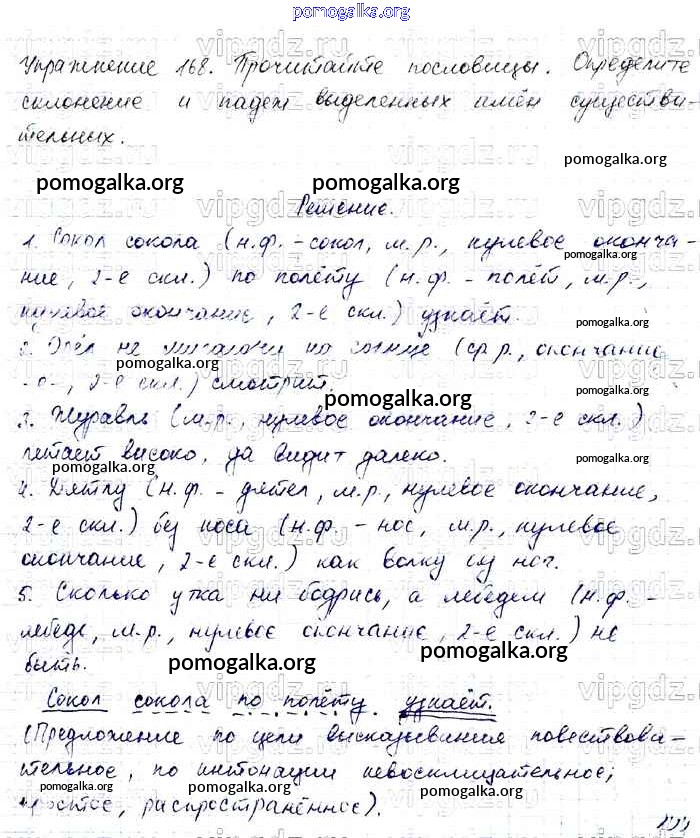 pomogalka.org
Упражнение 168. Прочитайте пословицы. Определите
склонение и падеж выделенных имён существи-
тельных.
pomogalka.org
pomogalka.org pomogalka.org
Решение.
1. Сокол сокола (н.ф. - сокол, м.р., нулевое оконча-
pomogalka.org
ние, 2-е скл.) по полёту (н.ф. - полёт, м.р.,
нулевое окончание, 2-е скл.) узнаёт.
pomogalka.org
2. Орёл не мигаючи на солнце (ср.р., окончание
pomogalka.org
-е-, 2-е скл.) смотрит.
pomogalka.org
3. Журавль (м.р., нулевое окончание, 2-е скл.)
летает высоко, да видит далеко.
pomogalka.org pomogalka.org
4. Дятлу (н.ф. - дятел, м.р., нулевое окончание,
2-е скл.) без носа (н.ф. - нос, м.р., нулевое
pomogalka.org
окончание, 2-е скл.) как волку без ног.
5. Сколько утка ни бодрись, а лебедем (н.ф. -
лебедь, м.р., нулевое окончание, 2-е скл.) не
быть.
pomogalka.org pomogalka.org
Сокол сокола по полёту узнаёт.
(Предложение по цели высказывания повествова-
pomogalka.org
тельное, по интонации невосклицательное;
простое, распространённое).
pomogalka.org
vipgdz.ru